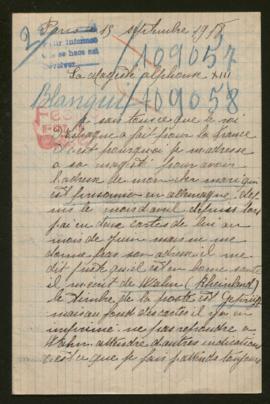 Paris 18 septembre 1917
109057
Sa Majesté alphonse XIII
Blanquie 109058
Je sais tout ce que le roi
d'Espagne a fait pour la france
c'est pourquoi je m'adresse
a sa majesté pour avoir
l'adresse de mon cher mari qui
est prisonnier en allemagne depuis
le mois d'avril depuis lors
j'ai eu deux cartes de lui au
mois de juin mais ne me
donne pas son adresse il me
dit juste qu'il est en bonne santé
il m'écrit de Wahn (Rheinland)
le timbre de la poste est
mais au fond des cartes il y a un
imprimé ne pas repondre a
Wahn attendre d'autres indications
c'est ce que je fais j'attends toujours